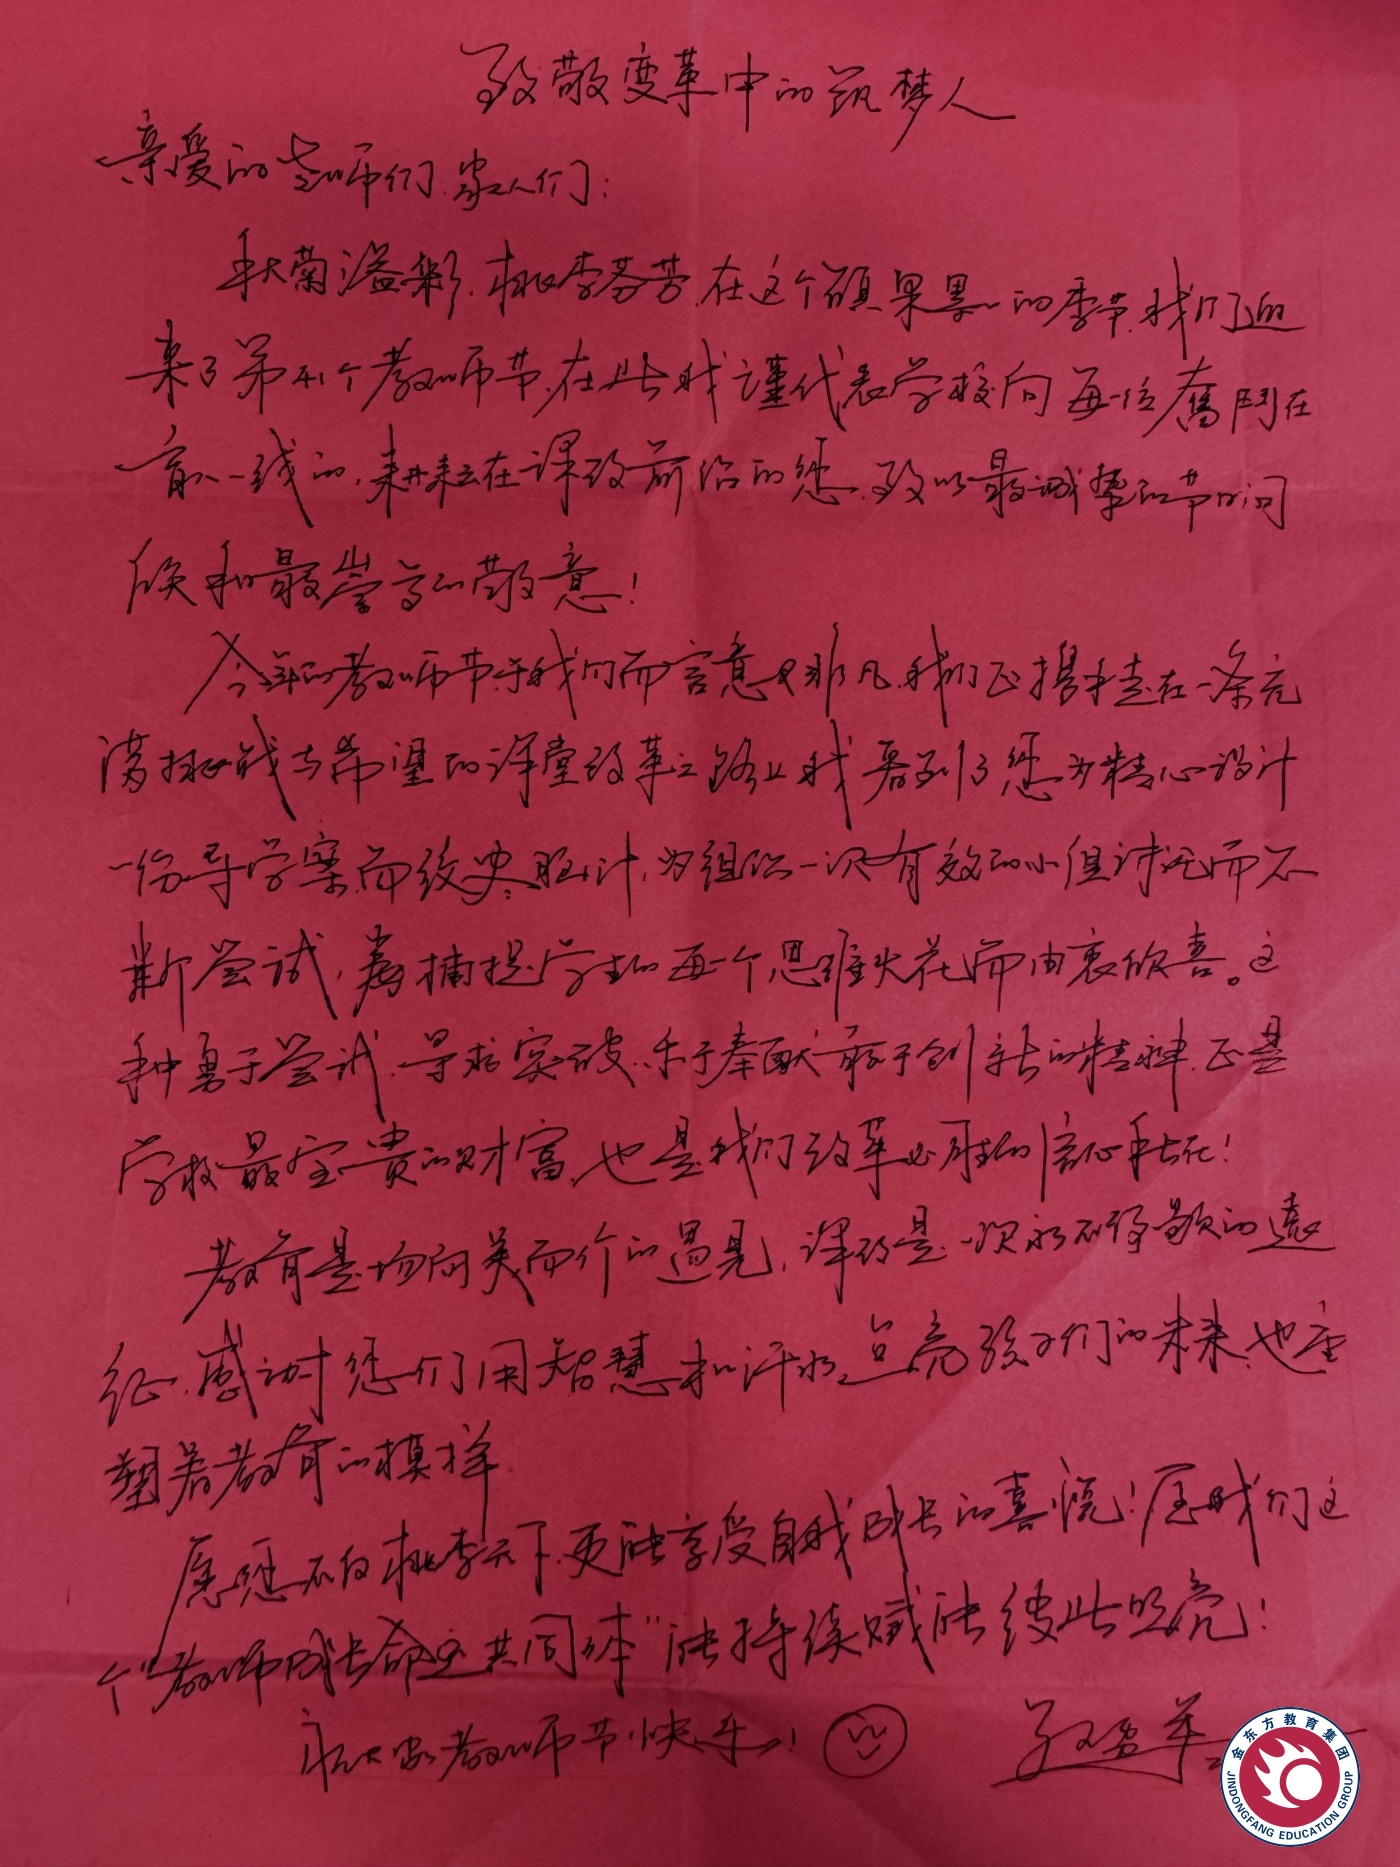 致敬变革中的筑梦人
亲爱的老师们、家人们：
秋菊溢彩，桃李芬芳，在这个硕果累累的季节，我们迎
来了第41个教师节，在此我谨代表学校向每一位奮鬥在
育人一线的，耕耘在课改前沿的您，致以最诚挚的节日问
候和最崇高的敬意！
今年的教师节，于我们而言意义非凡，我们正携手走在一条充
满挑战与希望的课堂改革之路上，我看到了您为精心设计
一份导学案而绞尽脑汁，为组织一次有效的小组讨论而不
断尝试，为捕捉学生的每一个思维火花而由衷欣喜。这
种勇于尝试、寻求突破、乐于奉献、敢于创新的精神，正是
学校最宝贵的财富，也是我们改革必胜的信心所在！
教育是一场向美而行的遇见，课改是一次永不停歇的远
征，感谢您们用智慧和汗水，点亮孩子们的未来，也重
塑着教育的模样。
愿您不仅桃李天下，更能享受自我成长的喜悦！愿我们这
个“教师成长命运共同体”能持续赋能，彼此照亮！
祝大家教师节快乐！
金东方教育集团
JINDONGFANG EDUCATION GROUP